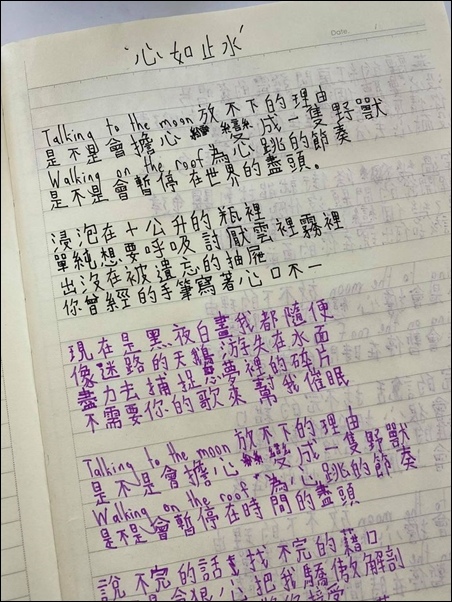 Date.
心如止水
Talking to the moon 放不下的理由
是不是會擔心 變成一隻野獸
Walking on the roof 為心跳的節奏
是不是會暫停在世界的盡頭。
浸泡在十公升的瓶裡
單純想要呼吸 討厭雲裡霧裡
出沒在被遺忘的抽屜
你曾經的手筆寫著心口不一
現在是黑夜白晝我都隨便
像迷路的天鵝 游失在水面
盡力去捕捉惡夢裡的碎片
不需要你的歌來幫我催眠
Talking to the moon 放不下的理由
是不是會擔心 變成一隻野獸
Walking on the roof 為心跳的節奏
是不是會暫停在時間的盡頭
說不完的話 找不完的藉口
是會狠心把我驕傲解剖